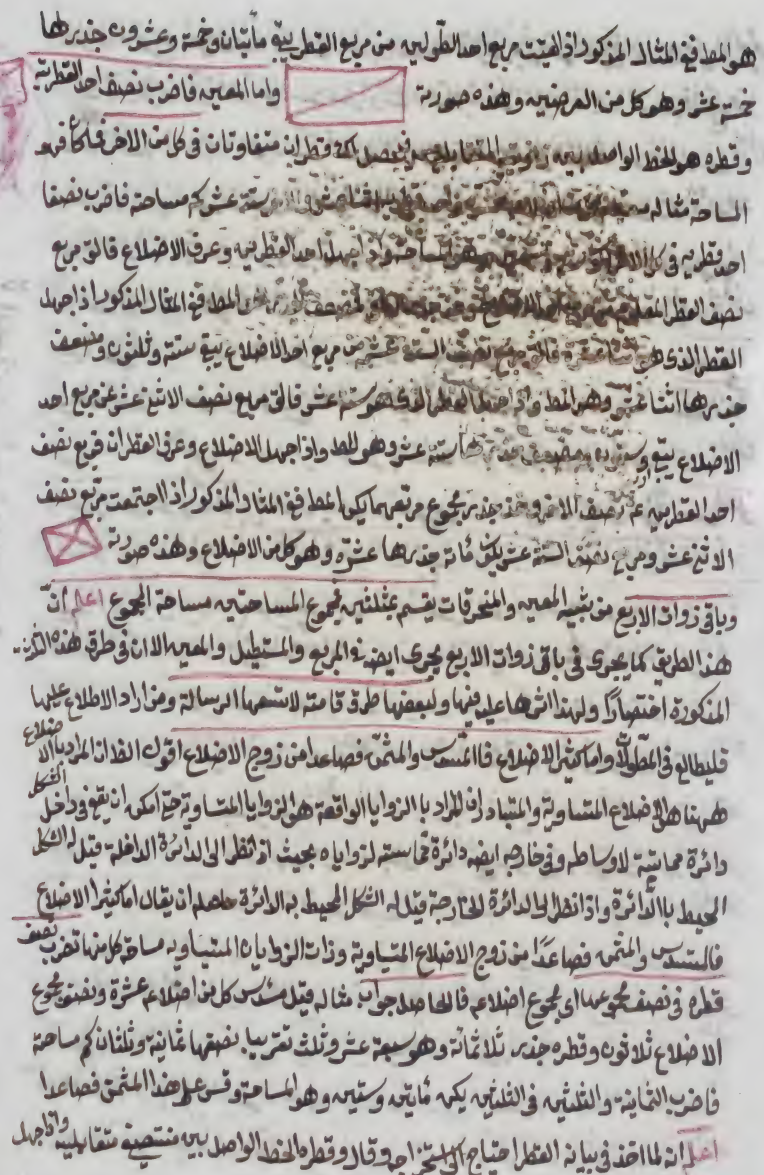 هو المط فى المثال المذكور اذ القيت مربع احد الطولين من مربع القطر يبقى مأتيان وخمسة وعشرون جذرها
خمسة عشر وهو كل من العرضين وهذه صورته واما المعين فاضرب نصف احد القطرين
وقطره هو الخط الواصل بين زاويتى المتقابلتين متفاوتان فى كل من الاخر فهو
المساحة مثاله اثنا عشر والاخر ستة عشر كم مساحته فاضرب نصف
احد قطريه فى كل الاخر وهو المساحة واذ اجهل احد القطرين وعرف الاضلاع فالق مربع
نصف القطر المعلوم من مربع احد الاضلاع المط فى المثال المذكور اذ اجهل
القطر الذى هو اثنا عشر فالق مربع نصف الستة عشر من مربع احد الاضلاع يبقى ستة وثلثون ومضعف
جذرها اثنا عشر وهو المط واذ اجهل القطر الذى هو ستة عشر فالق مربع نصف الاثنى عشر عن مربع احد
الاضلاع يبقى وستون ومضعف جذرها ستة عشر وهو المط واذ اجهل الاضلاع وعرف القطران فربع نصف
احد القطرين ثم نصف الاخر وخذ جذر مجموع مربعهما يكن المط فى المثال المذكور اذا اجتمعت مربع نصف
الاثنى عشر ومربع نصف الستة عشر يكن مائة جذرها عشرة وهو كل من الاضلاع وهذه صورته
وباقى ذوات الاربع من شبيه المعين والمنحرفات يقسم بمثلثين فمجموع المساحتين مساحة المجموع اعلم ان
هذا الطريق كما يجرى فى باقى ذوات الاربع يجرى ايضه فى المربع والمستطيل والمعين الا ان فى طرق هذه
المذكورة اختصارًا ولهذا اثرها عليه فيها ولبعضها طرق خاصته لا تسعها الرسالة ومن اراد الاطلاع عليها
فليطالع فى المطولات واما كثير الاضلاع فالمسدس والمثمن فصاعدا من زوج الاضلاع اقول الفذ ان المراد بالاضلاع
ههنا هى الاضلاع المتساوية والمتبادر ان المراد با الزوايا الواقعة هى الزوايا المتساوية حتى امكن ان يقع فى داخل الشكل
دائرة مماسة لاوساطه وفى خارجه ايضه دائرة مماسته لزواياه بحيث اذ انظر الى الدائرة الداخلة قيل له الشكل
المحيط بالدائرة واذ انظر الى الدائرة الخارجة قيل له الشكل المحيط به الدائرة حاصله ان يقال اما كثير الاضلاع
فالمسدس والمثمن فصاعدًا من زوج الاضلاع المتساوية وذات الزوايا المتساويه مساحة كل منها تضرب نصف
قطره فى نصف مجموعها اى مجموع اضلاعه فالحاصل جواب مثاله قيل مسدس كل من اضلاعه عشرة ونصف مجموع
الاضلاع ثلاثون وقطره جذر ثلاثمائة وهو سبعة عشر وثلث تقريبا نصفها ثمانية وثلثان كم مساحة
فاضرب الثمانية والثلثين فى الثلثين يكن مأيتين وستين وهو المساحة وقس على هذا المثمن فصاعدا
اعلم انه لما اخذ فى بيانه القطر احتياج الى وقال وقطره الخط الواصل بين منتصفى متقابليه واذ اجهل